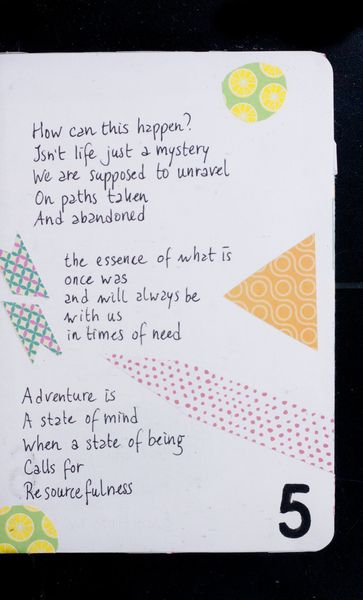 How can this happen?
Isn't life just a mystery
We are supposed to unravel
On paths taken
And abandoned
the essence of what is
once was
and will always be
with us
in times of need
Adventure is
A state of mind
When a state of being
Calls for
Resourcefulness
5